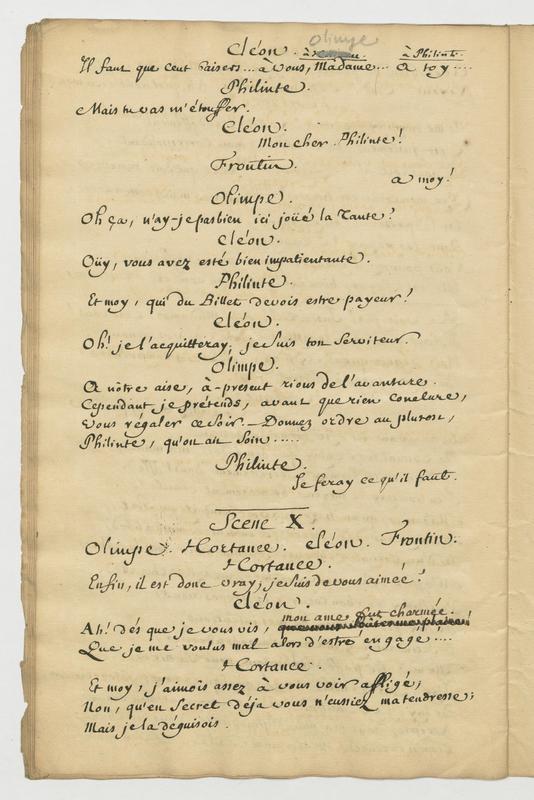 Cléon. Olimpe à Philinte.
Il faut que cent baisers... à vous, Madame... à toy....
Philinte.
Mais tu vas m'étouffer.
Cléon.
Mon cher Philinte!
Frontin.
a moy!
Olimpe.
Oh ça, n'ay-je pas bien ici joüé la Tante?
Cléon.
Oüy, vous avez esté bien impatientante.
Philinte.
Et moy, qui du Billet devois estre payeur!
Cléon.
Oh! je l'acquitteray; je suis ton serviteur.
Olimpe.
A nôtre aise, à-present rions de l'avanture.
Cependant je prétends, avant que rien conclure,
Vous régaler ce soir. - Donnez ordre au plutost,
Philinte, qu'on ait soin.....
Philinte.
Je feray ce qu'il faut.
Scene X.
Olimpe. Hortance. Cléon. Frontin.
Hortance.
Enfin, il est donc vray; je suis de vous aimée?
Cléon.
mon ame fut charmée.
Ah! dés que je vous vis,
Que je me voulus mal alors d'estre engagé....
Hortance.
Et moy, j'aimois assez à vous voir affligé;
Non, qu'en secret déja vous n'eussiez ma tendresse;
Mais je la déguisois.